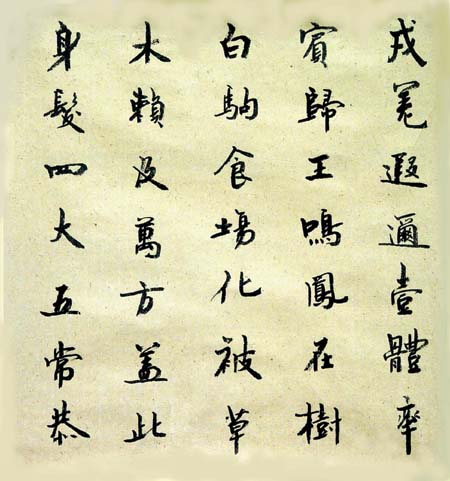 戎羌遐邇壹體率
賓歸王鳴鳳在樹
白駒食場化被草
木賴及萬方盖此
身髮四大五常恭